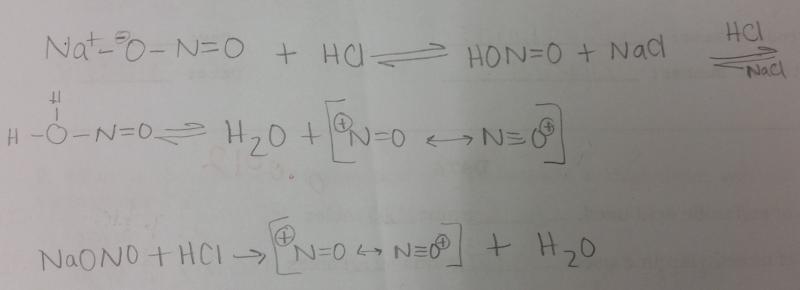 Na⁺ - ⊖O-N=O + HCl ⇌ HON=O + NaCl ⇌ HCl NaCl
H-O(H)-N=O ⇌ H₂O + [⊕N=O ↔ N≡O⊕]
NaONO + HCl → [⊕N=O ↔ N≡O⊕] + H₂O